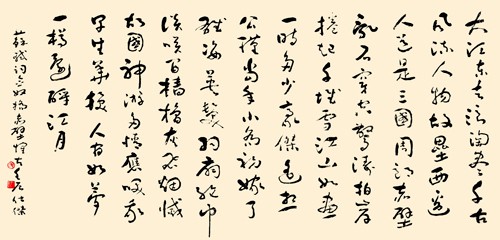 大江东去浪淘尽千古
风流人物故垒西边
人道是三國周郎赤壁
乱石穿空驚涛拍岸
捲起千堆雪江山如画
一時多少豪傑遥想
公瑾当年小喬初嫁了
雄姿英发羽扇纶巾
谈笑间樯櫓灰飞烟滅
故國神游多情應笑我
早生華发人间如夢
一樽还酹江月
蘇軾词念奴嬌赤壁懷古 仕傑